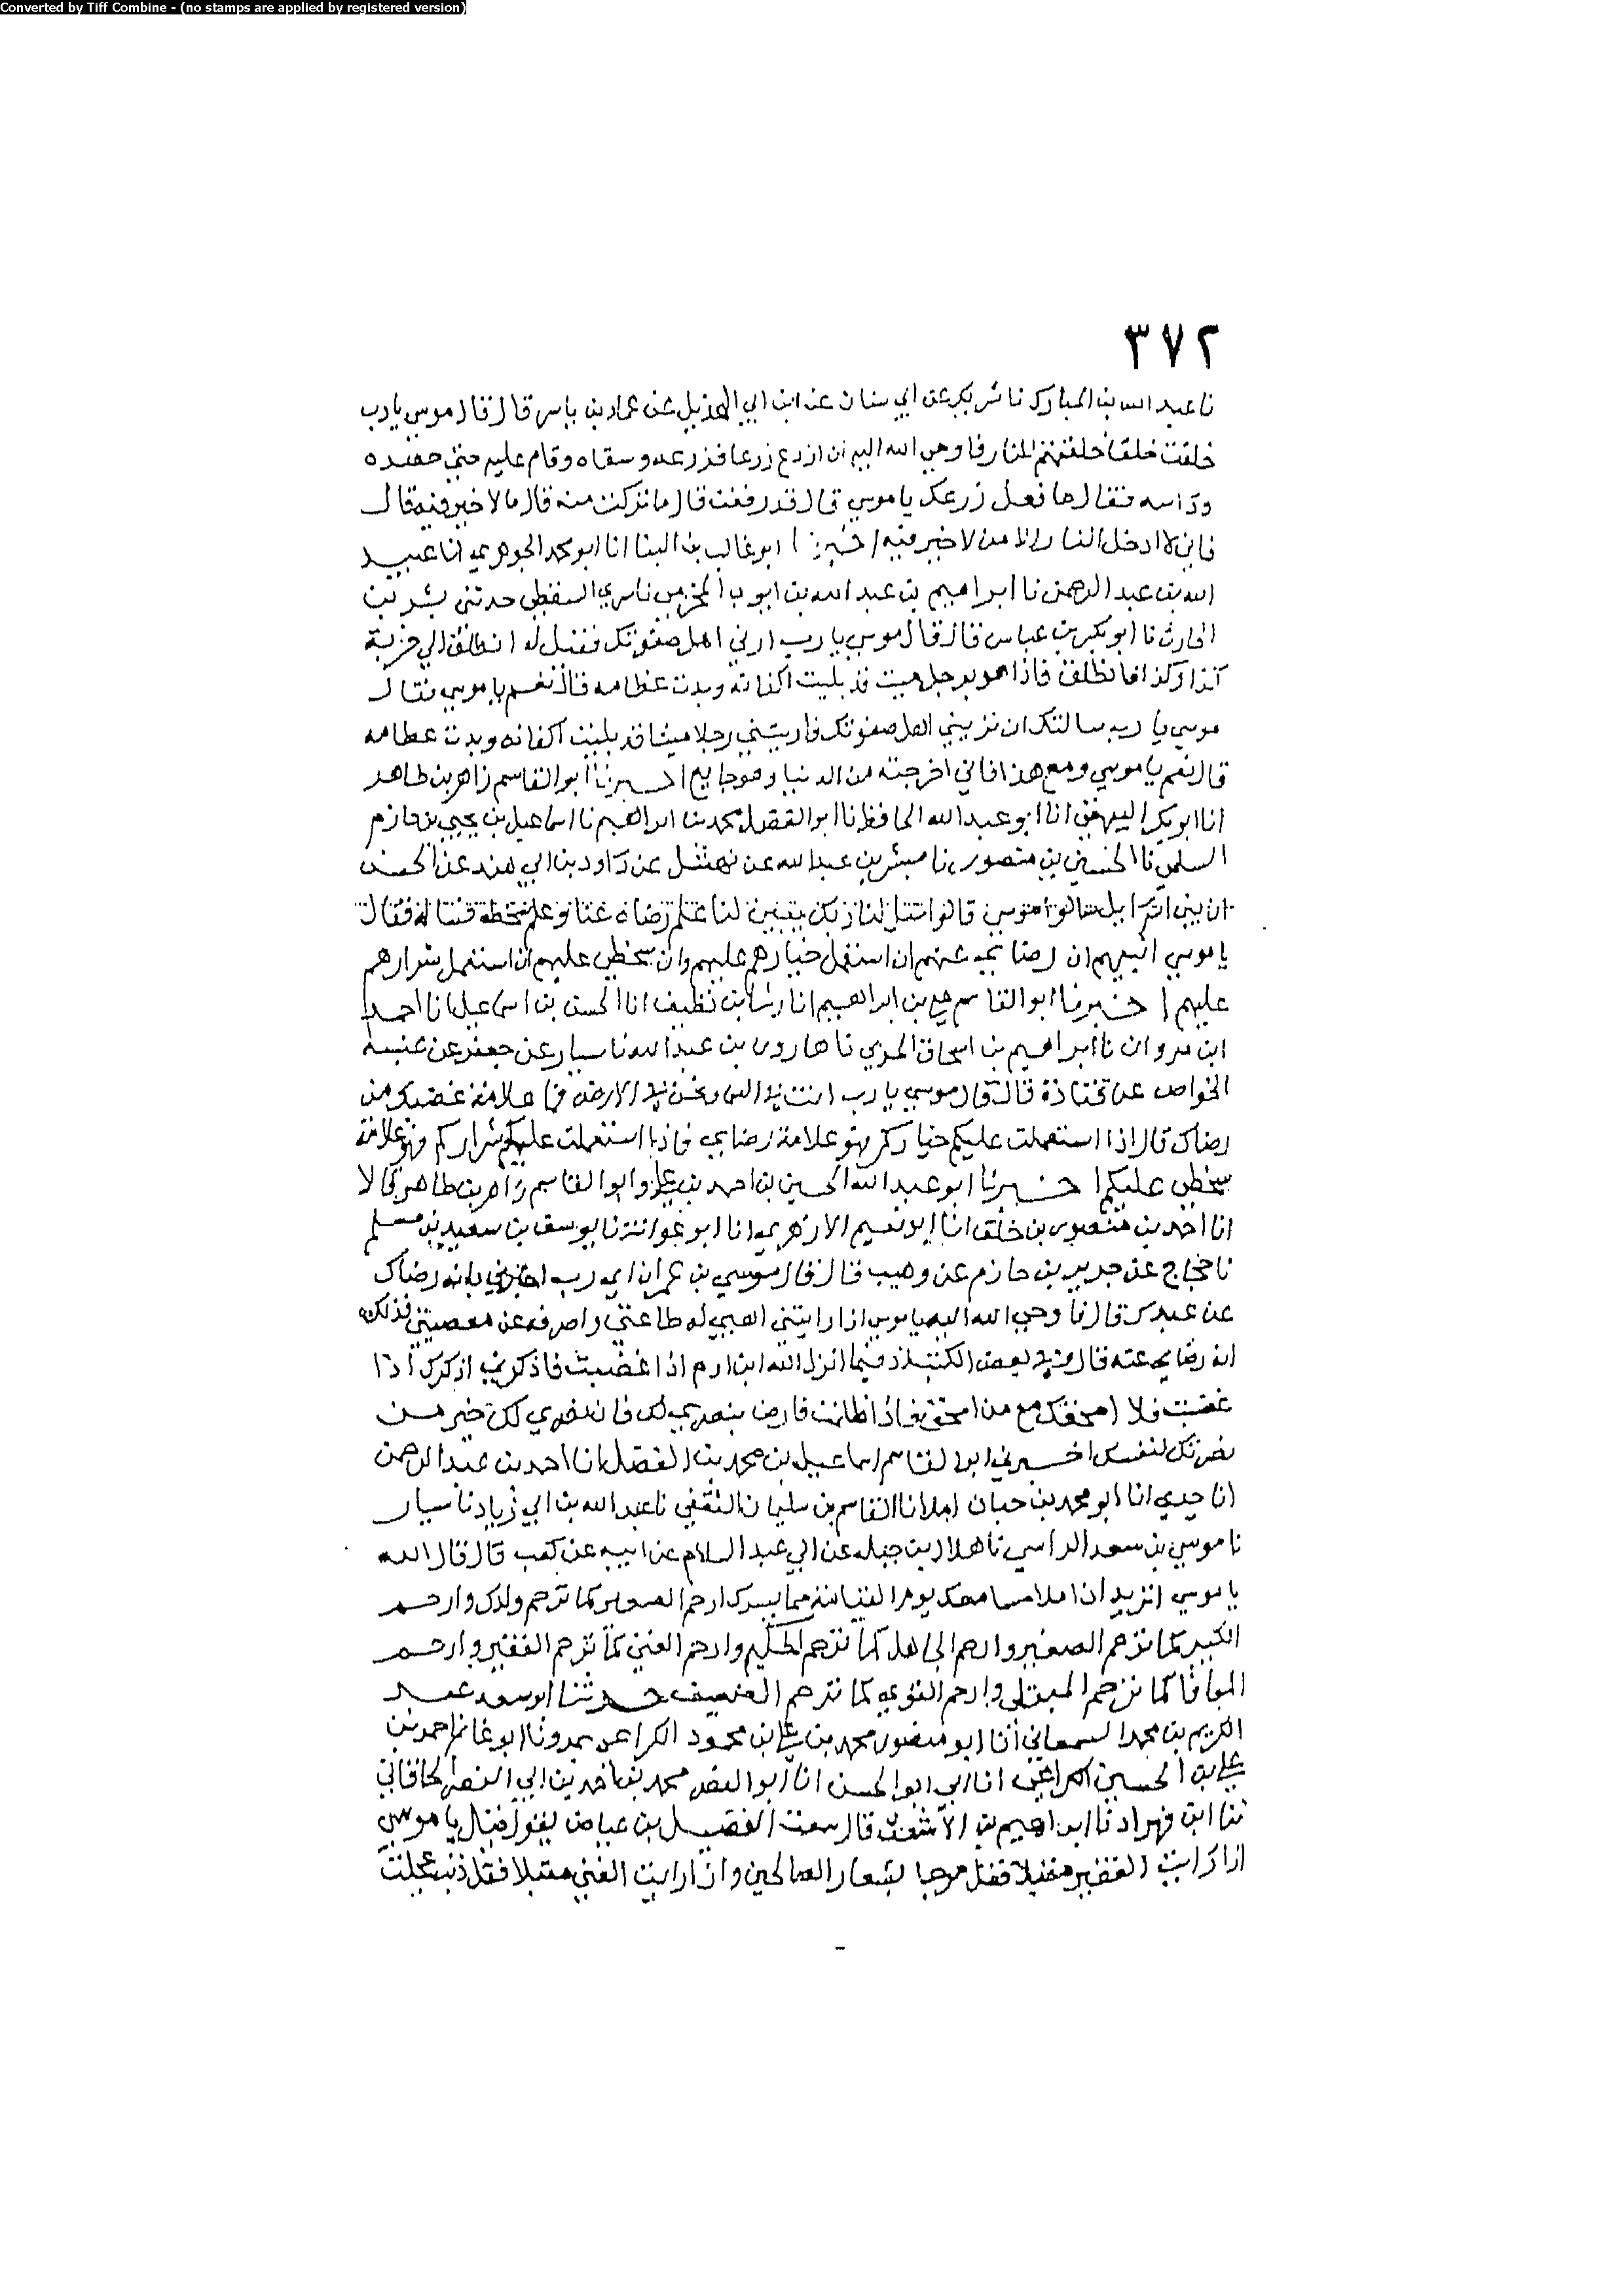 Converted by Tiff Combine - (no stamps are applied by registered version)
٣٧٢
نا عبد الله بن المبارك نا شريك عن ابي سنان عن ابن ابي الهذيل عن عمار بن ياسر قال قال موسي يا رب
خلقت خلقا خلقتهم للنار فاوحي الله اليه ان ازرع زرعا فزرعه وسقاه وقام عليه حتي حصده
وداسه فقال ما فعل زرعك يا موسي قال قد رفعت قال ما تركت منه قال ما لا خير فيه قال
فاني لا ادخل النار الا من لا خير فيه اخبرنا ابو غالب بن البنا انا ابو محمد الجوهري انا عبيد
الله بن عبد الرحمن نا ابراهيم بن عبد الله بن ايوب المخرمي نا سري السقطي حدثني بشر بن
الحارث نا ابو بكر بن عباس قال قال موسي يا رب ارني اهل صفوتك فقيل له انطلق الي خربة
كذا وكذا فانطلق فاذا هو برجل ميت قد بليت اكفانه وبدت عظامه قال نعم يا موسي فقال
موسي يا رب سالتك ان تريني اهل صفوتك فاريتني رجلا ميتا قد بليت اكفانه وبدت عظامه
قال نعم يا موسي ومع هذا فاني اخرجته من الدنيا وهو جايع اخبرنا ابو القاسم زاهر بن طاهر
انا ابو بكر البيهقي انا ابو عبد الله الحافظ نا ابو الفضل محمد بن ابراهيم نا اسماعيل بن يحيي بن حازم
السلمي نا الحسين بن منصور نا مبشر بن عبد الله عن نهشل عن داود بن ابي هند عن الحسن
ان بني اسرايل سالوا موسي قالوا سل لنا ربك يبين لنا علم رضاه عنا وعلم سخطه فساله فقال
يا موسي انبيهم ان رضاي عنهم ان استعمل خيارهم عليهم وان سخطي عليهم ان استعمل شرارهم
عليهم اخبرنا ابو القاسم علي بن ابراهيم انا رشا بن نظيف انا الحسن بن اسماعيل انا احمد
ابن مروان نا ابراهيم بن اسحاق الحربي نا هارون بن عبد الله نا سيار عن جعفر عن عنبسة
الخواص عن قتادة قال قال موسي يا رب انت في السما ونحن في الارض فما علامة غضبك من
رضاك قال اذا استعملت عليكم خياركم فهو علامة رضاي فاذا استعملت عليكم شراركم فهو علامة
سخطي عليكم اخبرنا ابو عبد الله الحسين بن احمد بن علي وابو القاسم زاهر بن طاهر قالا
انا احمد بن منصور بن خلف انا ابو نعيم الازهري انا ابو عوانة نا يوسف بن سعيد بن مسلم
نا حجاج عن جرير بن حازم عن وهيب قال قال موسي بن عمران اي رب اخبرني باية رضاك
عن عبدك قال فاوحي الله اليه يا موسي اذا رايتني اهيي له طاعتي واصرفه عن معصيتي فذلك
اية رضاي عنه قال وفي بعض الكتب فيما انزل الله ابن ادم اذا غضبت فاذكرني اذكرك اذا
غضبت فلا امحقك مع من امحق فاذا ظلمت فارض بنصرتي لك فان نصرتي لك خير من
نصرتك لنفسك اخبرني ابو القاسم اسماعيل بن محمد بن الفضل انا احمد بن عبد الرحمن
انا جدي انا ابو محمد بن حيان املانا القاسم بن سليمان الثقفي نا عبد الله بن ابي زياد نا سيار
نا موسي بن سعد الراسي نا هلال بن جبله عن ابي عبد السلام عن ابيه عن كعب قال قال الله
يا موسي اتريد ان املا مسامعك يوم القيامة مما يسرك ارحم الصغير كما ترحم ولدك وارحم
الكبير كما ترحم الصغير وارحم الجاهل كما ترحم الحكيم وارحم الغني كما ترحم الفقير وارحم
المعافا كما ترحم المبتلي وارحم القوي كما ترحم الضعيف حدثنا ابو سعد عبد
الكريم بن محمد السمعاني انا ابو منصور محمد بن علي بن محمود الكراعي بمرو نا ابو غانم احمد بن
علي بن الحسين الكراعي انا ابي ابو الحسن انا ابو النضر محمد بن احمد بن ابي النضر الخاقاني
نا ابن قهزاد نا ابراهيم بن الاشعث قال سمعت الفضيل بن عياض يقول قيل يا موسي
اذا رايت الفقير مقبلا فقل مرحبا بشعار الصالحين واذا رايت الغني مقبلا فقل ذنب عجلت